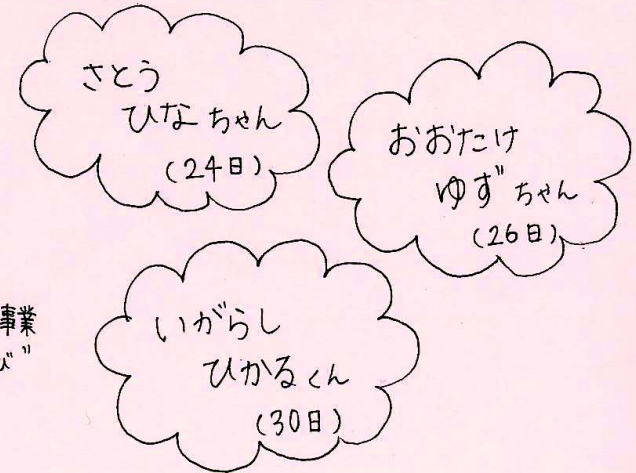 さとう
ひなちゃん
(24日)
おおたけ
ゆずちゃん
(26日)
いがらし
ひかるくん
(30日)
事業
び"